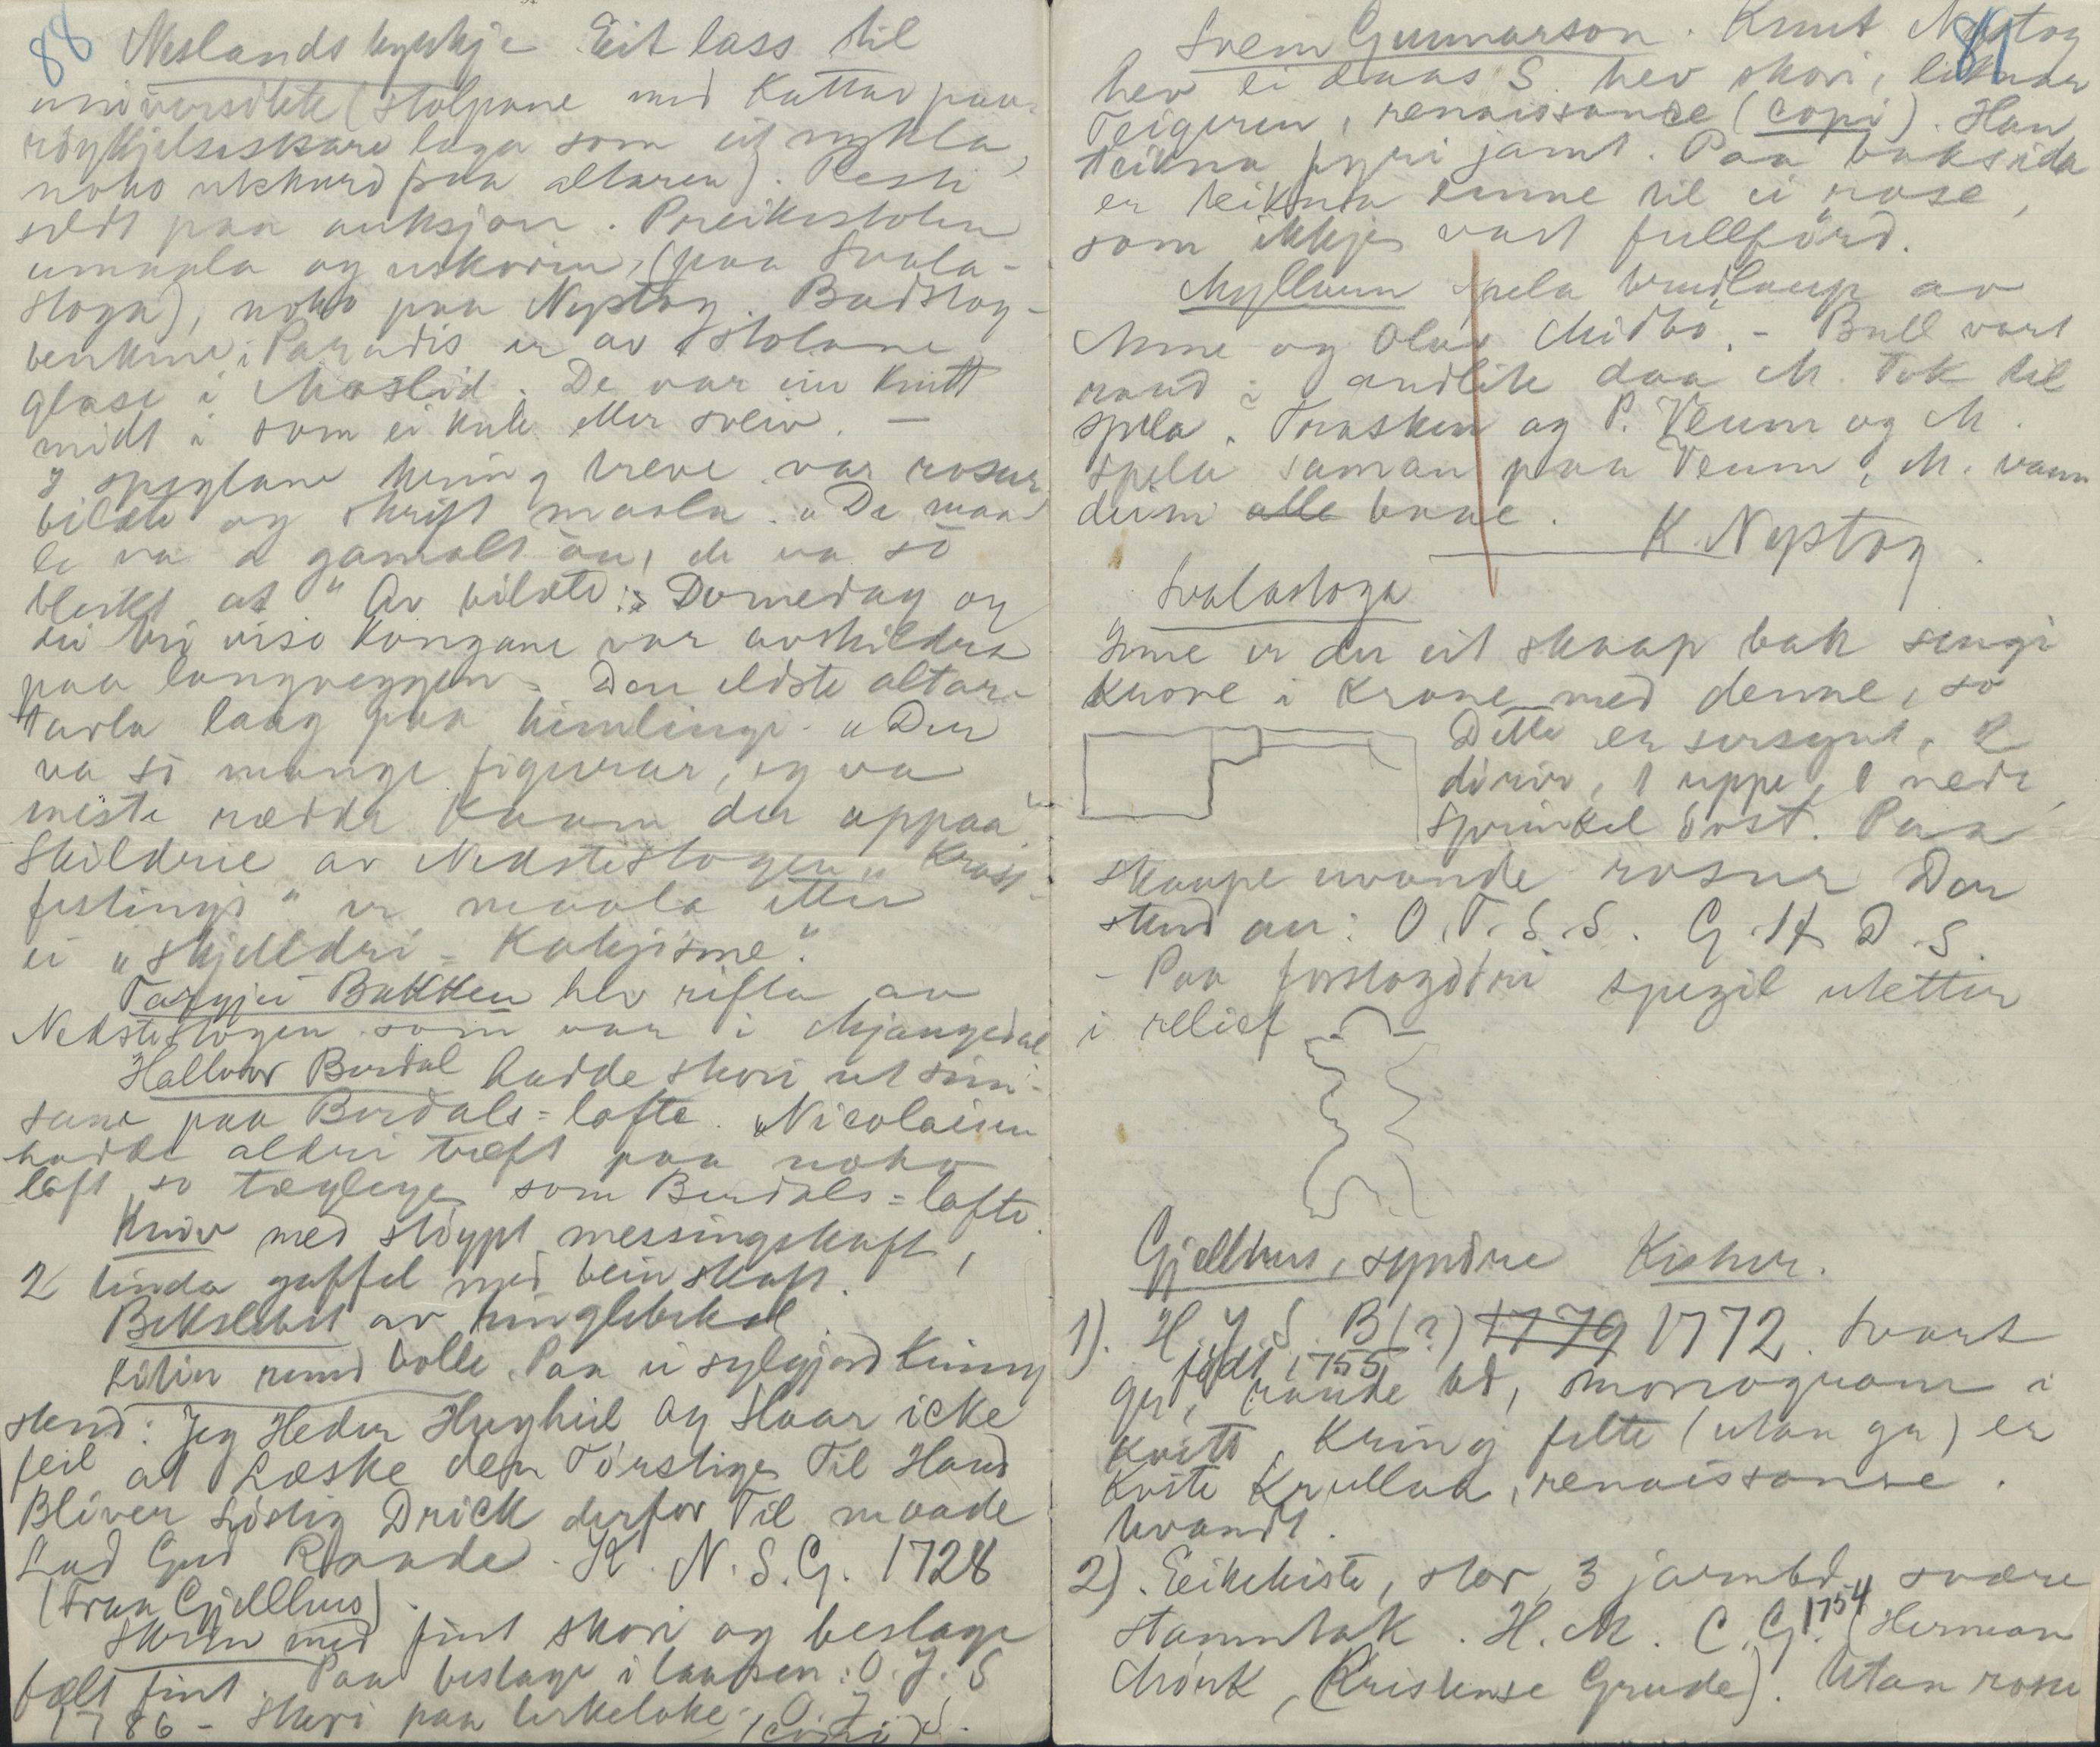 88
Neslandskyrkje Eit lass til
universitete (stolpane med Kattar paa,
röykjelseskare laga som eit nykla,
noko utskurd fraa altaren). Resti
seldt paa auksjon. Preikestolen
umaala og uskorin, (paa Svala-
stoga), noko paa Nystog. Badstog-
benkine i Paradis er av stolane
glase i Moslid. De var ein knitt
midt i som ei kule eller sveiv. —
I speglane kring breve var rosur
bilæte og skrift maala. "De maa
le va a gamalt än, de va so
bleikt at" Av bilæte: Domedag og
dei tri vise kongane var avskildra
paa langveggen. Den eldste altar-
tavla laag paa himlingi. "Der
va so mange figurar, eg va
meste rædde Kaam der uppaa"
Skildrie av Nekstestogen "Kross-
festingi" er maala etter
ei "skjelldri = Katjisme."
Targjei Bakken hev rifla av
Nekstestogen som var i Mjaugedal
Hallvor Burdal hadde skori ut svin-
sane paa Burdals=lofte. "Nicolaisen
hadde aldri træft paa noko
loft so tæglege som Burdals=lofte.
Kniv med stöypt messingskaft,
2 tinda gaffel med beinskaft.
Bekslebet av ringlebeksl
Litin rund bolle. Paa ei sylgjord kring
stend: Jeg Heder Hugheil og Haar icke
feil at Læske den Törstige Til Haand
Bliver Löstig Drick derfor Til maade
Lad Gud Raade. K. N. S. G. 1728
(Fraa Gjellhus).
Skrin med fint skori og beslage
fælt fint. Paa beslage i laasen: O. J. S
1786 - Skori paa lirkeloke - O J S.
89
Svein Gunnarson. Knut Nystog
hev ei daas S. hev skori, liknar
Teigeren, renaissance (copi). Han
teikna fyri jamt. Paa baksida
er teikna emne til ei rose,
som ikkje vart fullförd.
Myllaren spela brudlaup av
Anne og Olav Midbö. - Bull vart
raud i andlite daa M. tok til
spela. Fursken og P. Veum og M.
spela saman paa Veum, M. vann
deim alle baae.
K. Nystog.
Svalastoga
Inne er der eit skaap bak sengi
krone i krone med denne, so
Dette er sersynt, 2
dörir, 1 uppe, 1 nede,
Sprinkel övst. Paa
skaape uvande rosur Der
stend au: O. T. S. S. G. H D. S.
- Paa forstogdöri spegil utetter
i relief
Gjellhus, syndre Kistur.
1). H. J. S. B (?) 1779 1772. Svart
födt 1755
gr, raude bd, monogram i
kvitt. Kring felte (utan gr) er
kvite Krullar, renaissanse.
brandt.
2). Eikekiste, stor, 3 jarnbd, svære
stammtak. H. M. C. G. 1754 (Herman
Mörk, Kristense Grude). Utan rosur